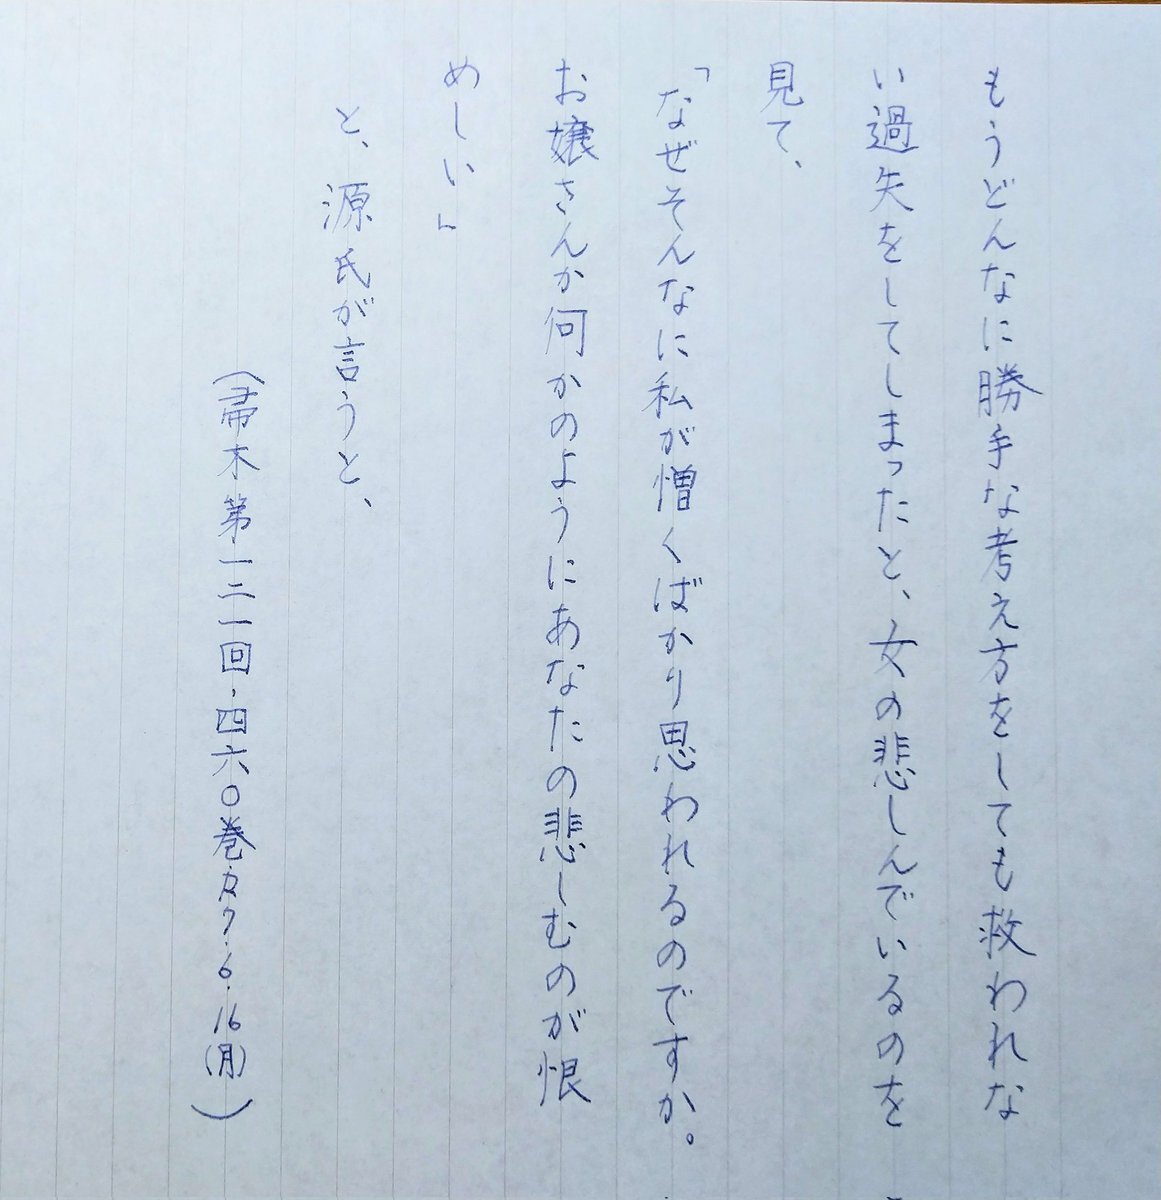 もうどんなに勝手な考え方をしても救われな
い過失をしてしまったと、女の悲しんでいるのを
見て、
「なぜそんなに私が憎くばかり思われるのですか。
お嬢さんか何かのようにあなたの悲しむのが恨
めしい」
と、源氏が言うと、
(帚木第一二一回・四六〇巻・カ7・6・16(月))